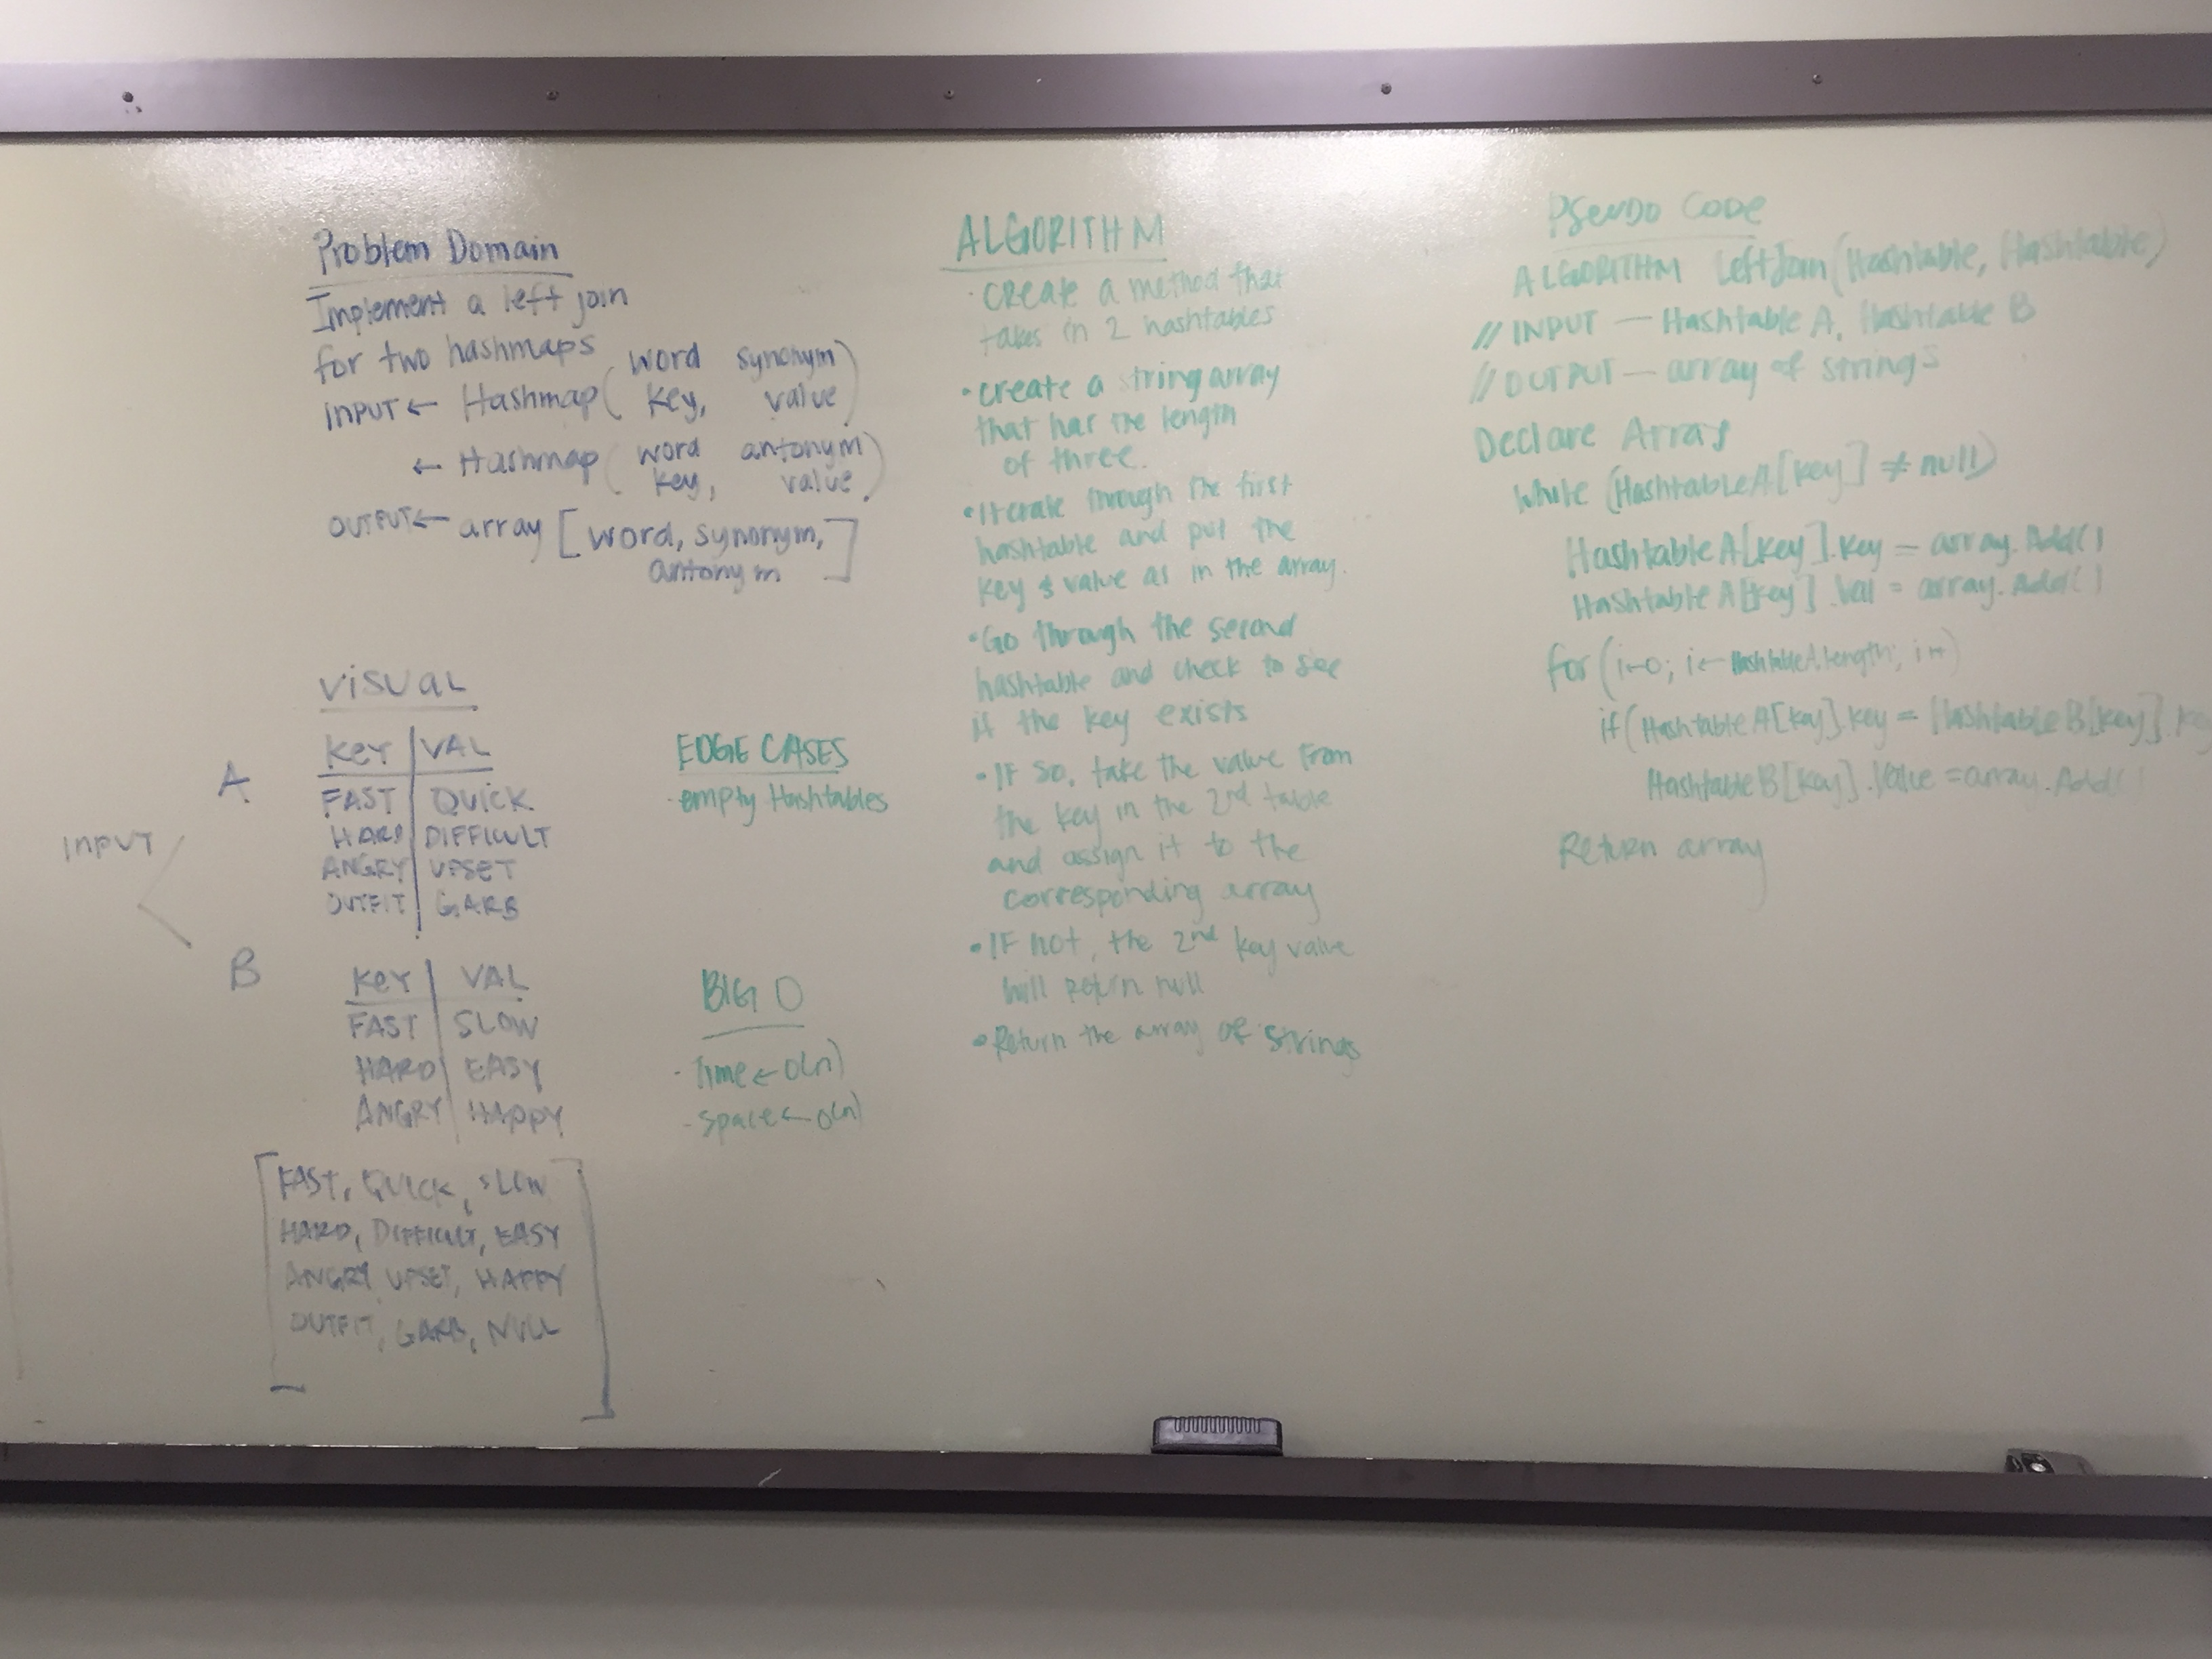 Problem Domain
Implement a left join
for two hashmaps
word synonym
INPUT ← Hashmap( key, value )
word antonym
← Hashmap( key, value )
OUTPUT ← array [word, synonym,
antonym]
VISUAL
A
KEY | VAL
FAST | QUICK
HARD | DIFFICULT
ANGRY | UPSET
OUTFIT | GARB
INPUT
B
KEY | VAL
FAST | SLOW
HARD | EASY
ANGRY | HAPPY
[FAST, QUICK, SLOW
HARD, DIFFICULT, EASY
ANGRY, UPSET, HAPPY
OUTFIT, GARB, NULL]
EDGE CASES
- empty Hashtables
BIG O
- Time ← O(n)
- space ← O(n)
ALGORITHM
· Create a method that
takes in 2 hashtables
· Create a string array
that has the length
of three.
· Iterate through the first
hashtable and put the
key & value as in the array.
· Go through the second
hashtable and check to see
if the key exists
· IF so, take the value from
the key in the 2nd table
and assign it to the
corresponding array
· IF not, the 2nd key value
will return null
· Return the array of strings
PSEUDO CODE
ALGORITHM LeftJoin(Hashtable, Hashtable)
// INPUT — Hashtable A, Hashtable B
// OUTPUT — array of strings
Declare Array
While (HashtableA[key] ≠ null)
HashtableA[key].key = array.Add()
HashtableA[key].Val = array.Add()
for (i←0; i← HashtableA.length; i++)
if (HashtableA[key].key = HashtableB[key].
HashtableB[key].Value = array.Add()
Return array